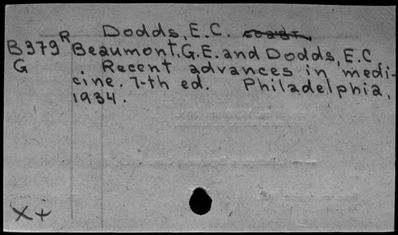 Dodds, E.C.
B379 R Beaumont, G.E. and Dodds, E.C
G Recent advances in medi-
cine. 7-th ed. Philadelphia,
1934.
X+